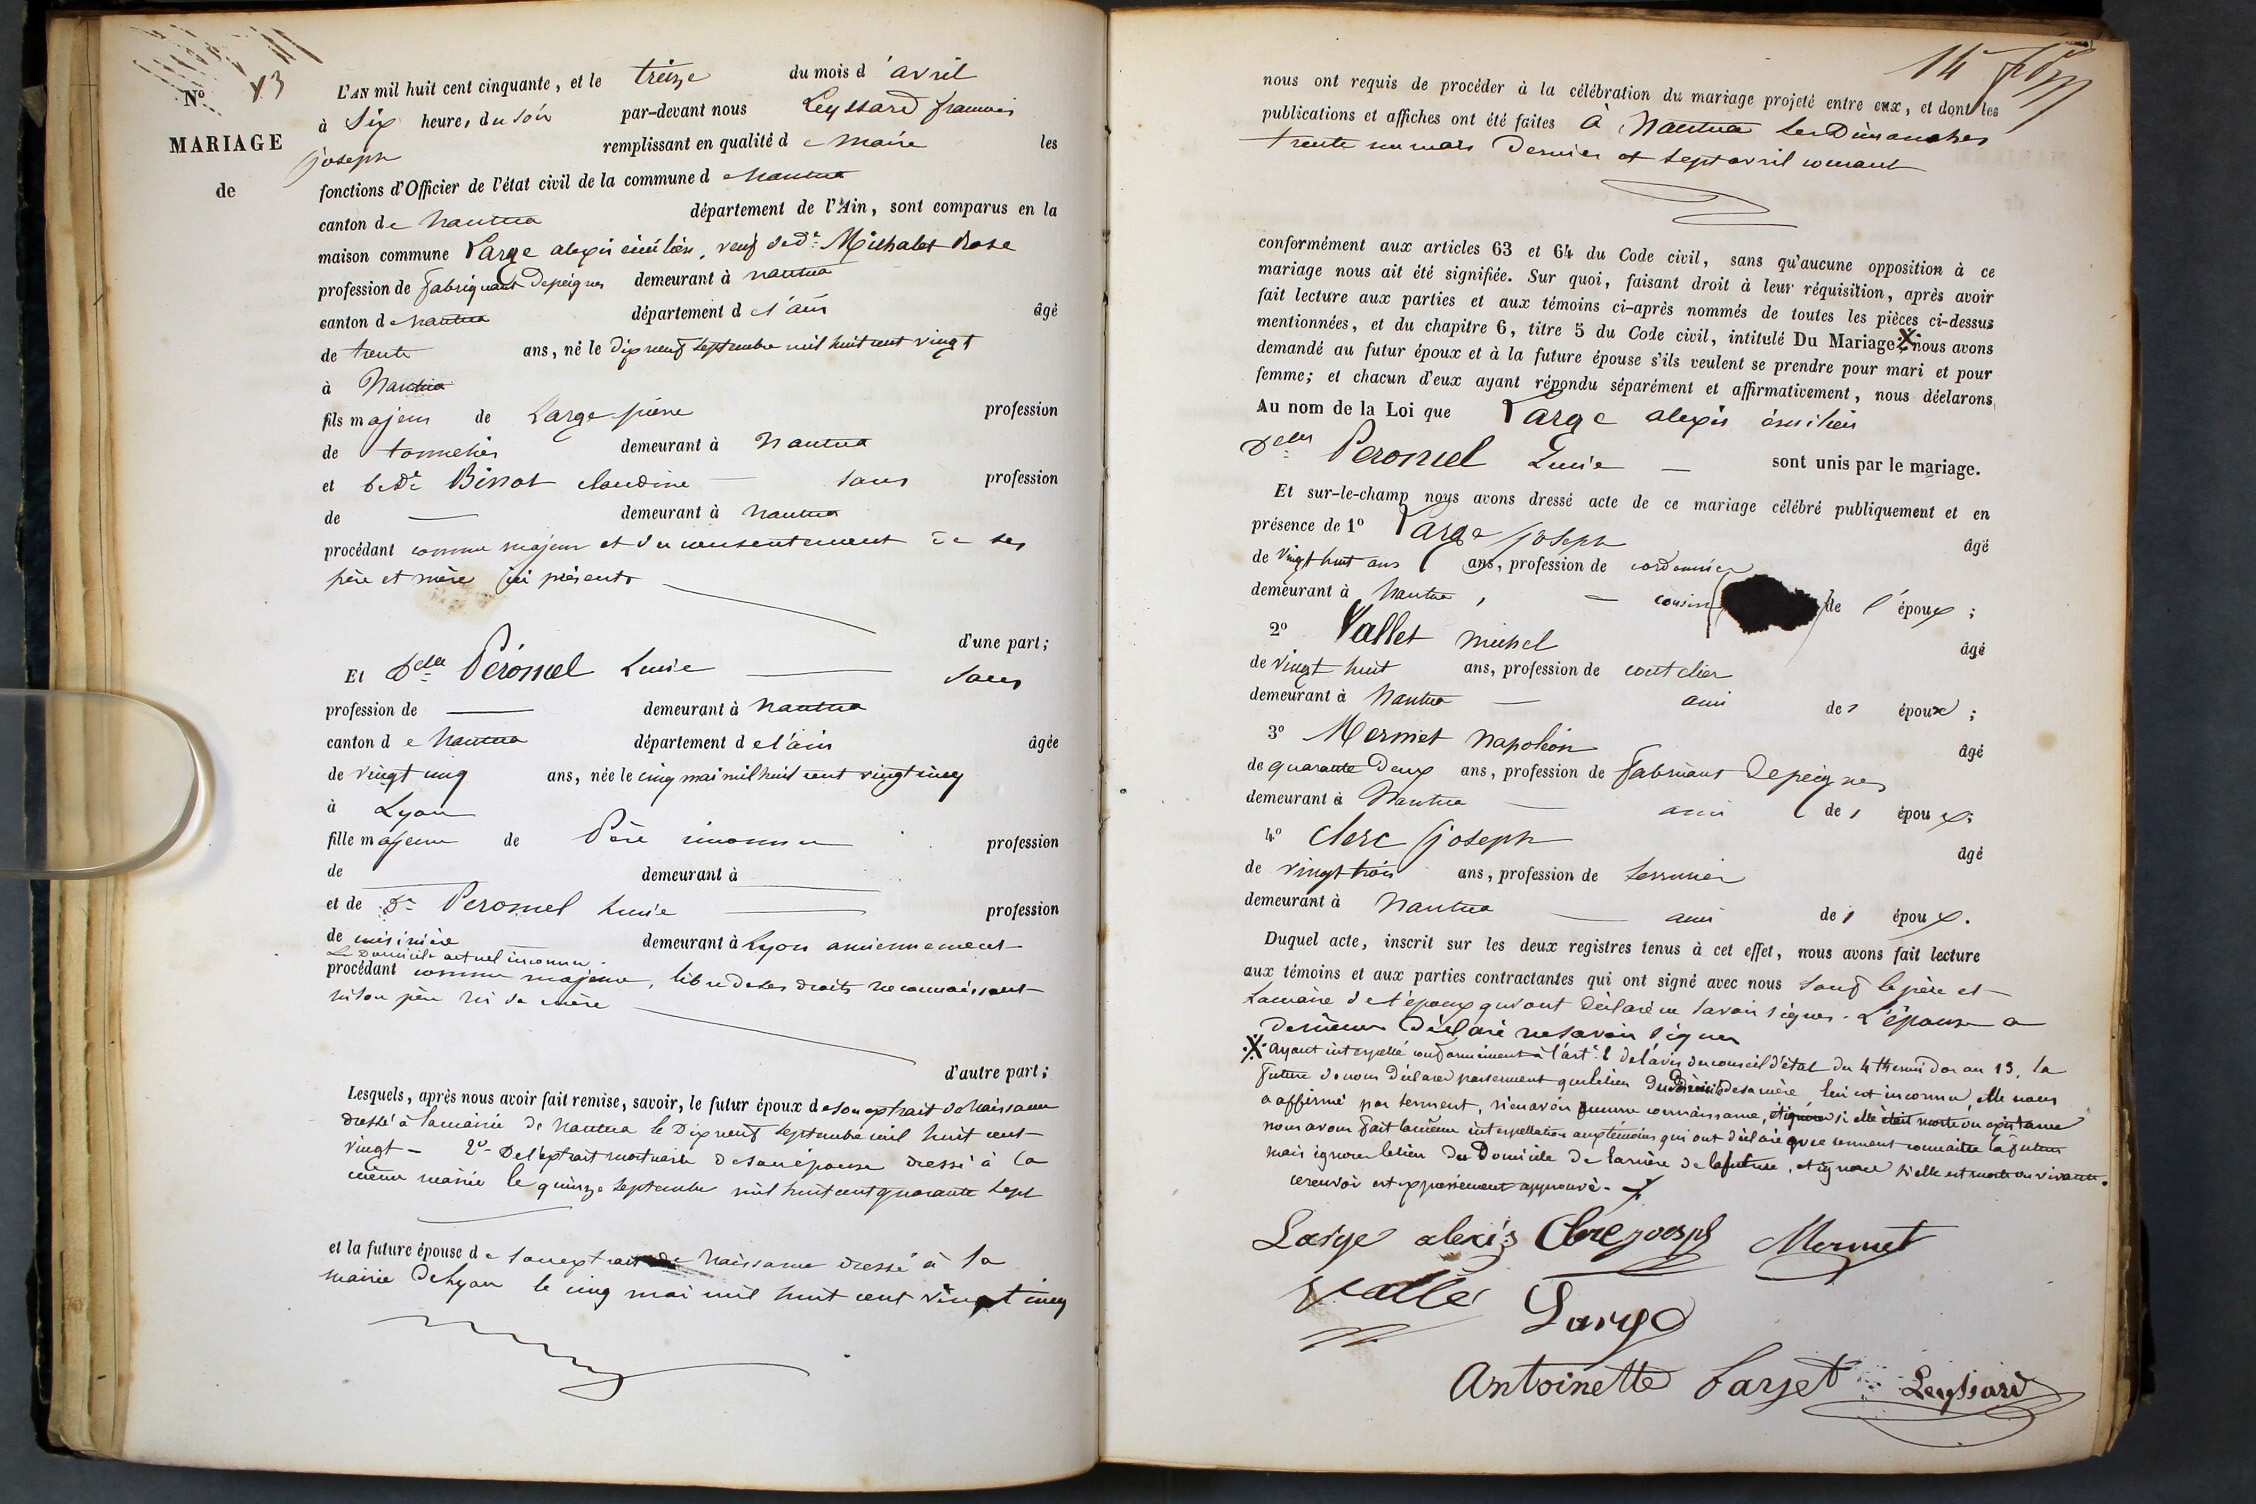 N° 13
MARIAGE
de
L'AN mil huit cent cinquante, et le treize du mois d'avril
à Six heures du soir par-devant nous Leyssard francois
joseph remplissant en qualité de Maire les
fonctions d'Officier de l'état civil de la commune de Nantua
canton de Nantua département de l'Ain, sont comparus en la
maison commune Large alexis émilien, veuf de de Michalet Rose
profession de Fabriquant Depeignes demeurant à Nantua
canton de Nantua département de l'ain âgé
de trente ans, né le dix neuf septembre mil huit cent vingt
à Nantua
fils majeur de Large pierre profession
de tonnelier demeurant à Nantua
et de De Bissot claudine sans profession
de demeurant à Nantua
procédant comme majeur et du consentement de ses
père et mère ici présents
d'une part;
Et Delle Péronnel Lucie sans
profession de demeurant à Nantua
canton de Nantua département de l'ain âgée
de vingt cinq ans, née le cinq mai mil huit cent vingt cinq
à Lyon
fille majeure de Père inconnu profession
de demeurant à
et de De Peronnel Lucie profession
de cuisinière demeurant à Lyon anciennement
Le Domicile actuel inconnu.
procédant comme majeure, libre de ses droits ne connaissant
ni son père ni sa mère
d'autre part;
Lesquels, après nous avoir fait remise, savoir, le futur époux de son extrait de Naissance
dressé à la mairie de Nantua le Dix neuf septembre mil huit cent
vingt - 2° De l'extrait mortuaire de son épouse dressé à la
même mairie le quinze septembre mil huit cent quarante sept
et la future épouse de son extrait de Naissance dressé à la
mairie De Lyon le cinq mai mil huit cent vingt cinq
14
nous ont requis de procéder à la célébration du mariage projeté entre eux, et dont les
publications et affiches ont été faites à Nantua les Dimanches
trente un mars Dernier et sept avril courant
conformément aux articles 63 et 64 du Code civil, sans qu'aucune opposition à ce
mariage nous ait été signifiée. Sur quoi, faisant droit à leur réquisition, après avoir
fait lecture aux parties et aux témoins ci-après nommés de toutes les pièces ci-dessus
mentionnées, et du chapitre 6, titre 5 du Code civil, intitulé Du Mariage; X nous avons
demandé au futur époux et à la future épouse s'ils veulent se prendre pour mari et pour
femme; et chacun d'eux ayant répondu séparément et affirmativement, nous déclarons,
Au nom de la Loi que Large alexis émilien
Delle Peronnel Lucie sont unis par le mariage.
Et sur-le-champ nous avons dressé acte de ce mariage célébré publiquement et en
présence de 1° Large joseph âgé
de vingt huit ans ans, profession de cordonnier
demeurant à Nantua, cousin de l'époux;
2° Vallet michel âgé
de vingt huit ans, profession de coutelier
demeurant à Nantua ami de l époux;
3° Mermet Napoléon âgé
de quarante Deux ans, profession de Fabricant Depeignes
demeurant à Nantua ami de l époux;
4° Clerc joseph âgé
de vingt trois ans, profession de serrurier
demeurant à Nantua ami de l époux.
Duquel acte, inscrit sur les deux registres tenus à cet effet, nous avons fait lecture
aux témoins et aux parties contractantes qui ont signé avec nous sauf le père et
la mère de l'époux qui ont Déclaré ne savoir signer. L'épouse a
de même Déclaré ne savoir signer
X ayant interpellé conformément à l'art. 2 de l'avis du conseil d'état du 4 thermidor an 13, la
future de nous Déclarer par serment que le lieu Du Domicile de sa mère lui est inconnu, elle nous
a affirmé par serment, n'en avoir aucune connaissance, et ignorer si elle était morte ou existante
nous avons fait la même interpellation aux témoins qui ont déclaré que serment connaitre la future
mais ignorer le lieu du Domicile de la mère de la future, et ignorer si elle est morte ou vivante.
ce renvoi est expressément approuvé.
Large alexis Clerc joesph Mermet
Vallé Large
Antoinette Leyssard